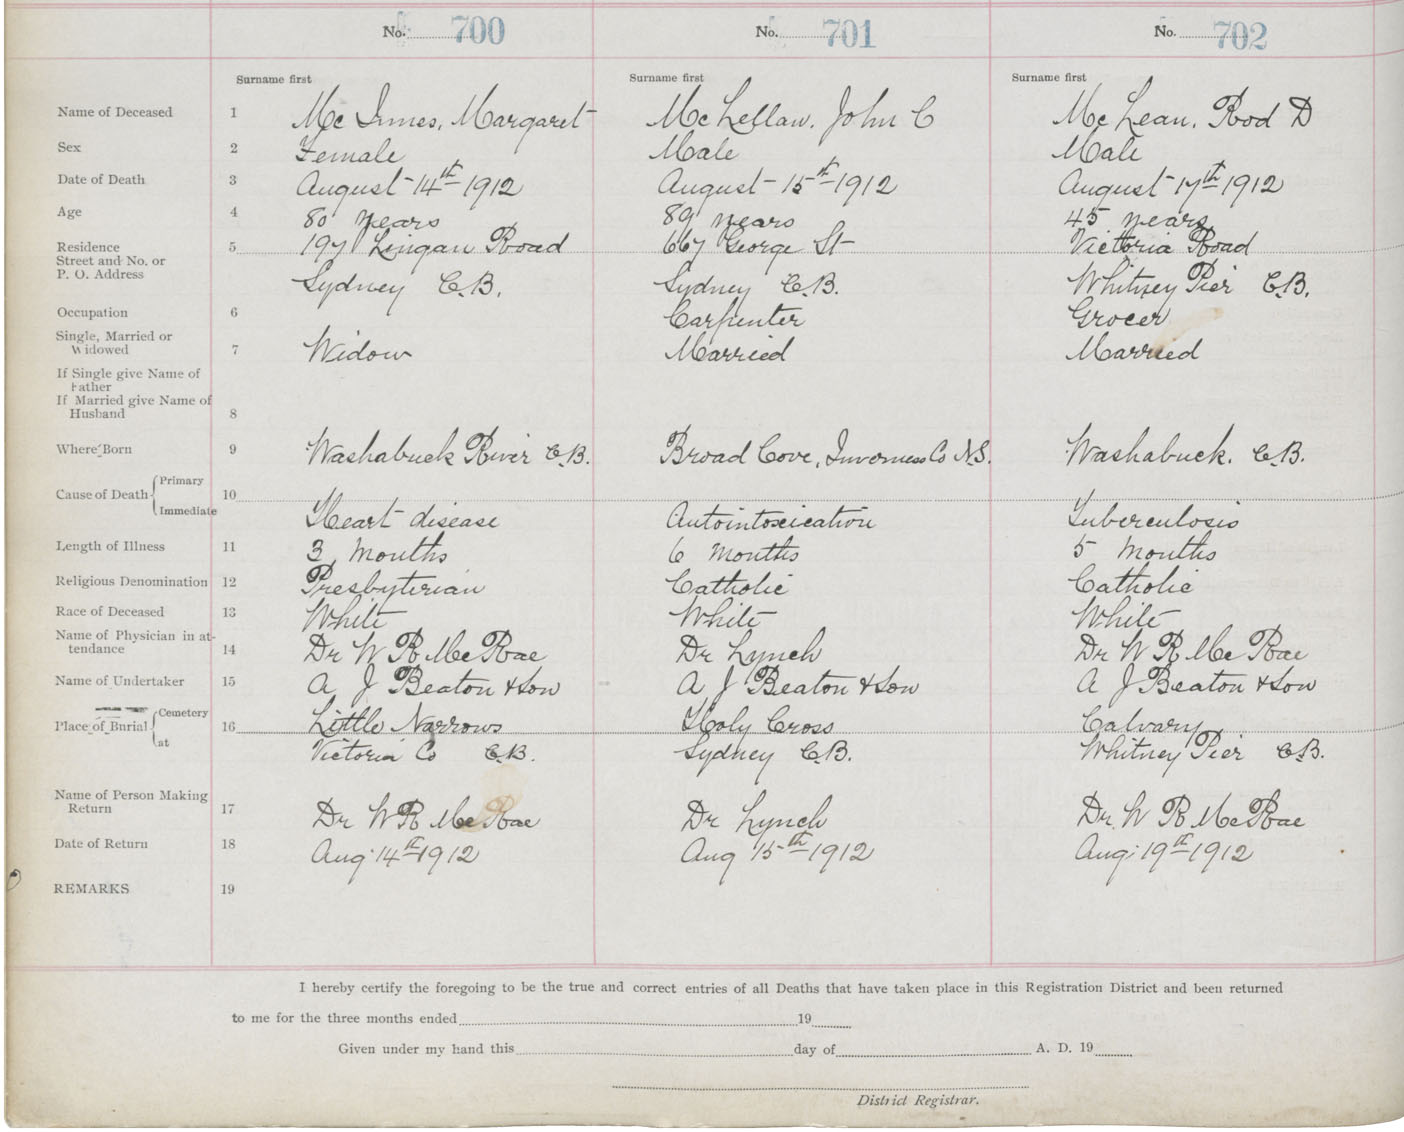 No. 700 No. 701 No. 702
Surname first Surname first Surname first
Name of Deceased 1 Mc Innes, Margaret Mc Lellan, John C Mc Lean, Rod D
Sex 2 Female Male Male
Date of Death 3 August 14th 1912 August 15th 1912 August 17th 1912
Age 4 80 years 89 years 45 years
Residence 5 197 Lingan Road 667 George St Victoria Road
Street and No. or
P. O. Address Sydney C.B. Sydney C.B. Whitney Pier C.B.
Occupation 6 Carpenter Grocer
Single, Married or
Widowed 7 Widow Married Married
If Single give Name of
Father
If Married give Name of
Husband 8
Where Born 9 Washabuck River C.B. Broad Cove, Inverness Co N.S. Washabuck. C.B.
Primary
Cause of Death 10
Immediate Heart disease Autointoxication Tuberculosis
Length of Illness 11 3 Months 6 months 5 Months
Religious Denomination 12 Presbyterian Catholic Catholic
Race of Deceased 13 White White White
Name of Physician in at-
tendance 14 Dr W R McRae Dr Lynch Dr W R McRae
Name of Undertaker 15 A J Beaton & Son A J Beaton & Son A J Beaton & Son
Cemetery
Place of Burial 16 Little Narrows Holy Cross Calvary
at Victoria Co C.B. Sydney C.B. Whitney Pier C.B.
Name of Person Making
Return 17 Dr W R McRae Dr Lynch Dr. W R McRae
Date of Return 18 Aug 14th 1912 Aug 15th 1912 Aug: 19th 1912
REMARKS 19
I hereby certify the foregoing to be the true and correct entries of all Deaths that have taken place in this Registration District and been returned
to me for the three months ended 19
Given under my hand this day of A. D. 19
District Registrar.